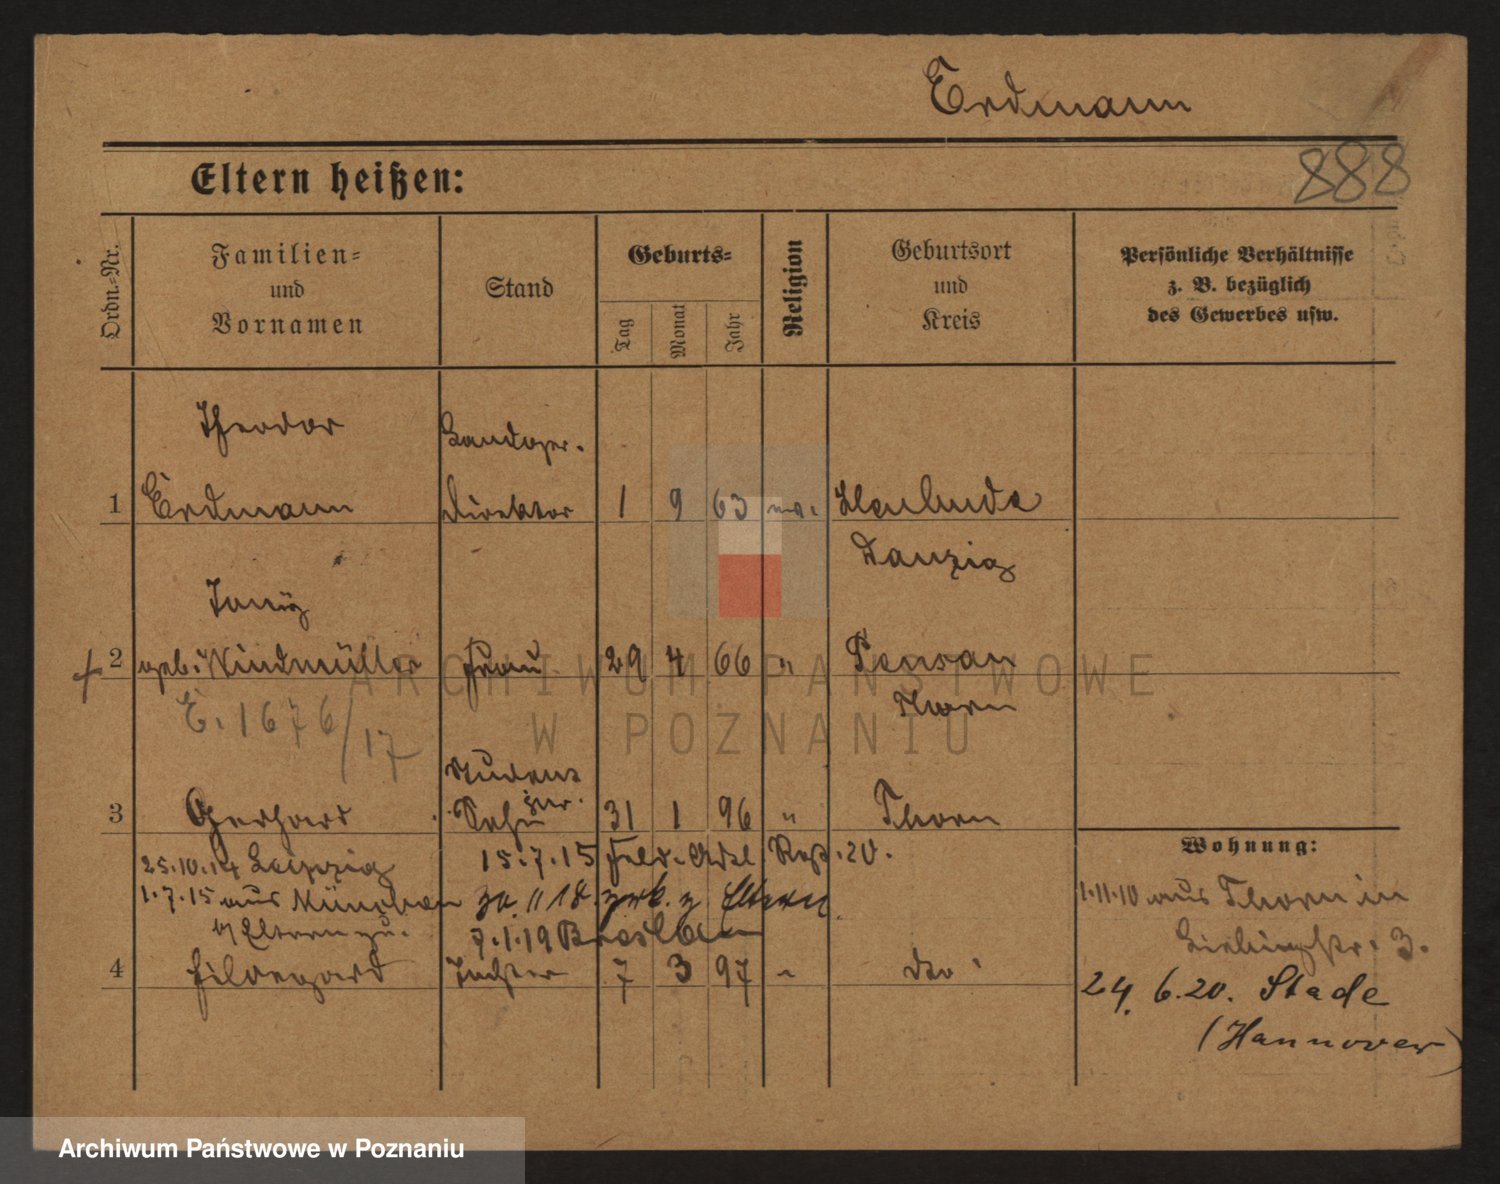 Erdmann
888
Eltern heißen:
Ordn.-Nr.
Familien-
und
Vornamen
Stand
Geburts-
Tag
Monat
Jahr
Religion
Geburtsort
und
Kreis
Persönliche Verhältnisse
z. B. bezüglich
des Gewerbes usw.
Theodor
Landger.
1 Erdmann Direktor 1 9 63
Danzig
2 geb. Windmüller Frau 29 4 66 "
Thorn
E. 1676/17
Student
3 Gerhard jur. 31 1 96 " Thorn
25.10.14 Leipzig 15.7.15 Feld-Artl. Rgt. 20.
1.7.15 aus München 30.11.18 zrk. z. Eltern
z. Eltern zu.
7.1.19 Breslau
4 Hildegard Tochter 7 3 97 " dto
Wohnung:
1.11.10 aus Thorn in
3.
24. 6.20. Stade
(Hannover)
ARCHIWUM PAŃSTWOWE
W POZNANIU
Archiwum Państwowe w Poznaniu